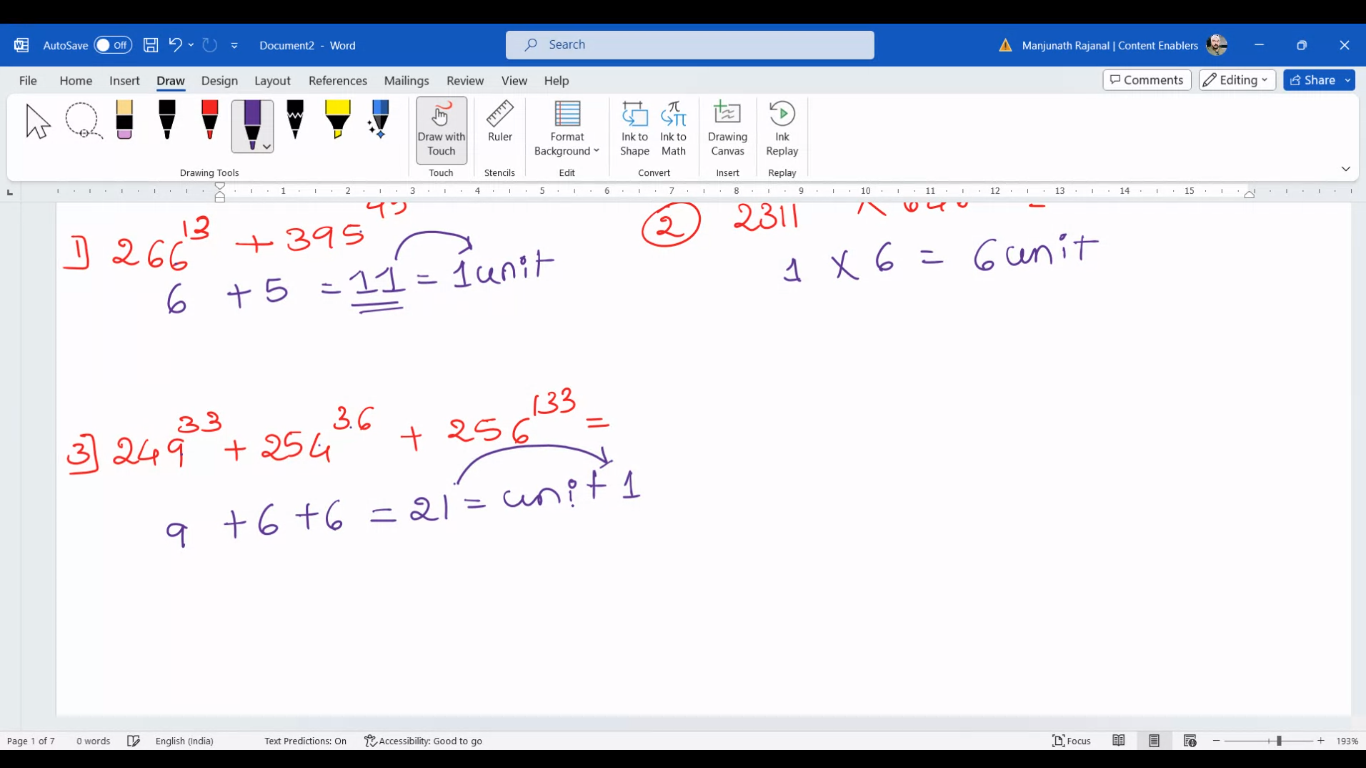 AutoSave Off Document2 - Word Search Manjunath Rajanal | Content Enablers
File Home Insert Draw Design Layout References Mailings Review View Help Comments Editing Share
Draw with Touch Ruler Format Background Ink to Shape Ink to Math Drawing Canvas Ink Replay
Drawing Tools Touch Stencils Edit Convert Insert Replay
1 2 3 4 5 6 7 8 9 10 11 12 13 14 15
1] 266^13 + 395
6 + 5 = 11 = 1 unit
2 2311
1 X 6 = 6 unit
3] 249^33 + 254^3.6 + 256^133 =
9 + 6 + 6 = 21 = unit 1
Page 1 of 7 0 words English (India) Text Predictions: On Accessibility: Good to go Focus 193%